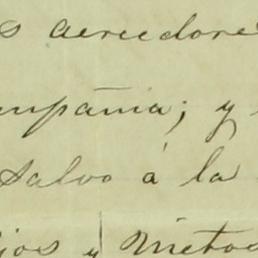 s acreedore
mpañia; y
salvo á la
jos y metod